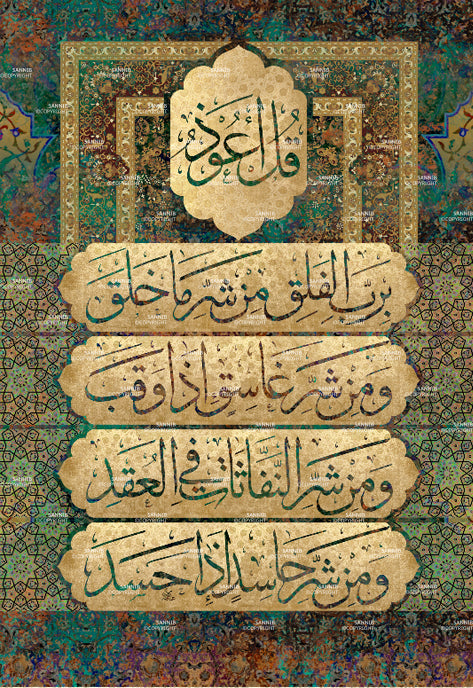 قُلْ أَعُوذُ
بِرَبِّ الفَلَقِ مِن شَرِّ مَا خَلَقَ
وَمِن شَرِّ غَاسِقٍ إِذَا وَقَبَ
وَمِن شَرِّ النَّفَّاثَاتِ فِي العُقَدِ
وَمِن شَرِّ حَاسِدٍ إِذَا حَسَدَ
SANNIB
©COPYRIGHT